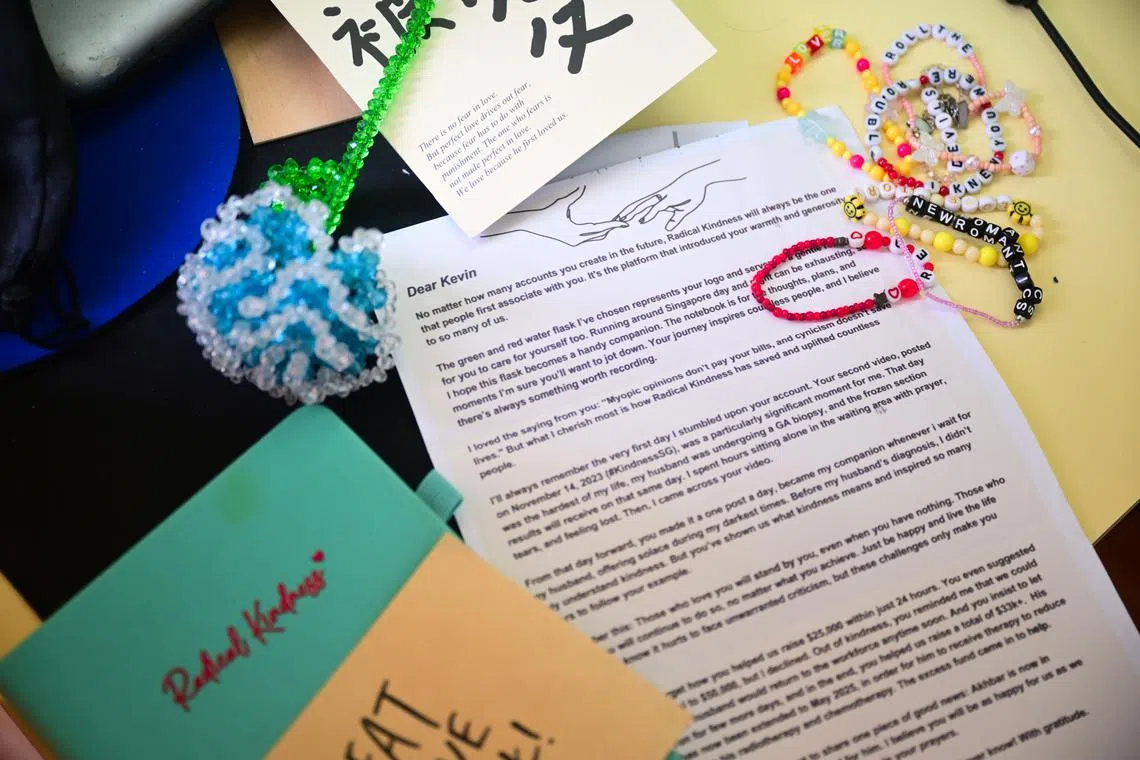 There is no fear in love.
But perfect love drives out fear,
because fear has to do with
punishment. The one who fears is
not made perfect in love.
We love because he first loved us.
LOVE
ROLL THE
NEWROMANTICS
RE
Dear Kevin
No matter how many accounts you create in the future, Radical Kindness will always be the one
that people first associate with you. It's the platform that introduced your warmth and generosity
to so many of us.
The green and red water flask I've chosen represents your logo and serves a gentle
for you to care for yourself too. Running around Singapore day and can be exhausting,
I hope this flask becomes a handy companion. The notebook is for thoughts, plans, and
moments I'm sure you'll want to jot down. Your journey inspires countless people, and I believe
there's always something worth recording.
I loved the saying from you: "Myopic opinions don't pay your bills, and cynicism doesn't save
lives." But what I cherish most is how Radical Kindness has saved and uplifted countless
people.
I'll always remember the very first day I stumbled upon your account. Your second video, posted
on November 14, 2023 (#KindnessSG), was a particularly significant moment for me. That day
was the hardest of my life, my husband was undergoing a GA biopsy, and the frozen section
results will receive on that same day. I spent hours sitting alone in the waiting area with prayer,
tears, and feeling lost. Then, I came across your video.
From that day forward, you made it a one post a day, became my companion whenever i wait for
my husband, offering solace during my darkest times. Before my husband's diagnosis, I didn't
understand kindness. But you've shown us what kindness means and inspired so many
to follow your example.
this: Those who love you will stand by you, even when you have nothing. Those who
will continue to do so, no matter what you achieve. Just be happy and live the life
know it hurts to face unwarranted criticism, but these challenges only make you
get how you helped us raise $25,000 within just 24 hours. You even suggested
to $50,000, but I declined. Out of kindness, you reminded me that we could
husband would return to the workforce anytime soon. And you insist to let
few more days, and in the end, you helped us raise a total of $33k+. His
now been extended to May 2025, in order for him to receive therapy to reduce
radiotherapy and chemotherapy. The excess fund came in to help.
to share one piece of good news: Akhbar is now in
for him. I believe you will be as happy for us as we
your prayers.
know! With gratitude.
Radical Kindness
EAT